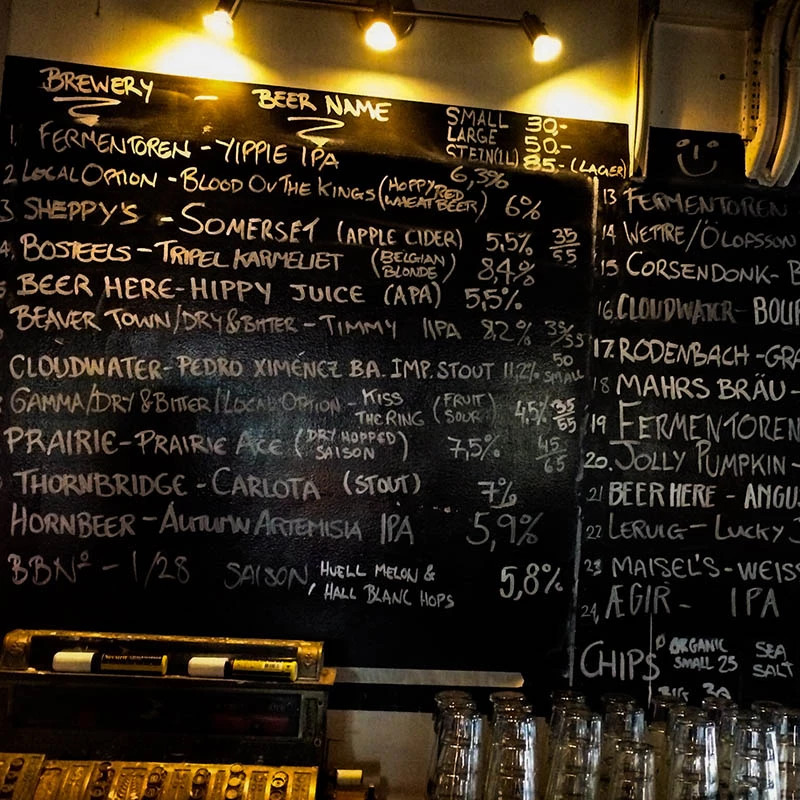 BREWERY - BEER NAME
SMALL 30.-
LARGE 50.-
STEIN(1L) 85.- (LAGER)
1. FERMENTOREN - YIPPIE IPA 6,3%
2 LOCAL OPTION - BLOOD OV THE KINGS (HOPPY RED WHEAT BEER) 6%
3 SHEPPY'S - SOMERSET (APPLE CIDER) 5,5% 35/55
4. BOSTEELS - TRIPEL KARMELIET (BELGIAN BLONDE) 8,4%
BEER HERE - HIPPY JUICE (APA) 5,5%
BEAVER TOWN/DRY & BITTER - TIMMY IIPA 8,2% 35/55
CLOUDWATER - PEDRO XIMÉNEZ BA. IMP. STOUT 11,2% 50 SMALL
GAMMA/DRY & BITTER/LOCAL OPTION - KISS THE RING (FRUIT SOUR) 4,5% 35/55
PRAIRIE - PRAIRIE ACE (DRY HOPPED SAISON) 7,5% 45/65
THORNBRIDGE - CARLOTA (STOUT) 7%
HORNBEER - AUTUMN ARTEMISIA IPA 5,9%
BBNº - 1/28 SAISON HUELL MELON & HALL BLANC HOPS 5,8%
13 FERMENTOREN
14 WETTRE/ÖLOFSSON
15 CORSENDONK - B
16. CLOUDWATER - BOUR
17. RODENBACH - GRA
18 MAHRS BRÄU -
19 FERMENTOREN
20. JOLLY PUMPKIN -
21 BEER HERE - ANGU
22 LERVIG - LUCKY J
23 MAISEL'S - WEISS
24, ÆGIR - IPA
CHIPS ORGANIC SEA
SMALL 25 SALT
BIG